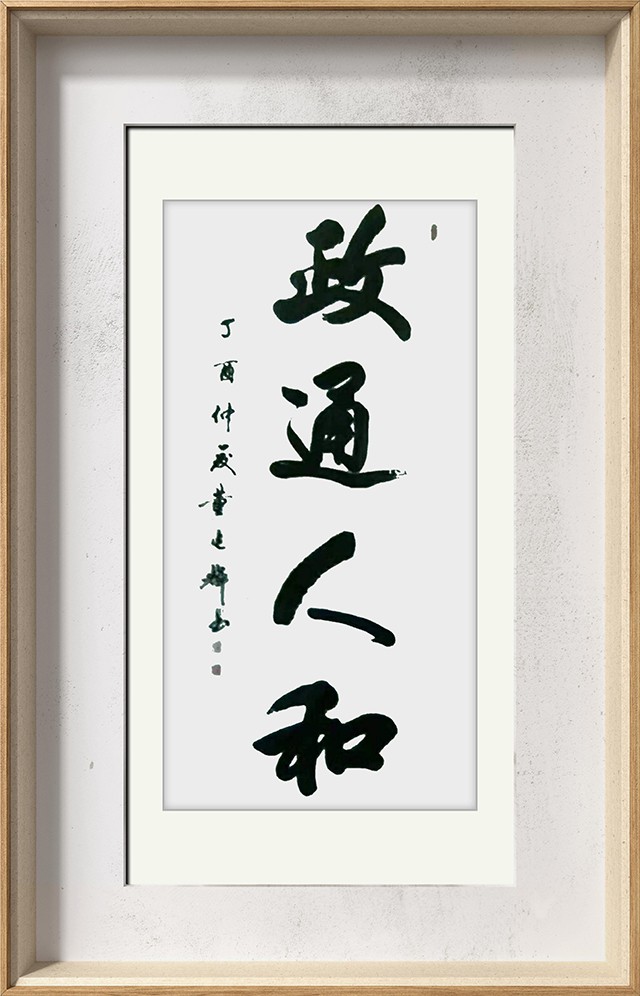 政通人和
丁酉仲夏董建辉书